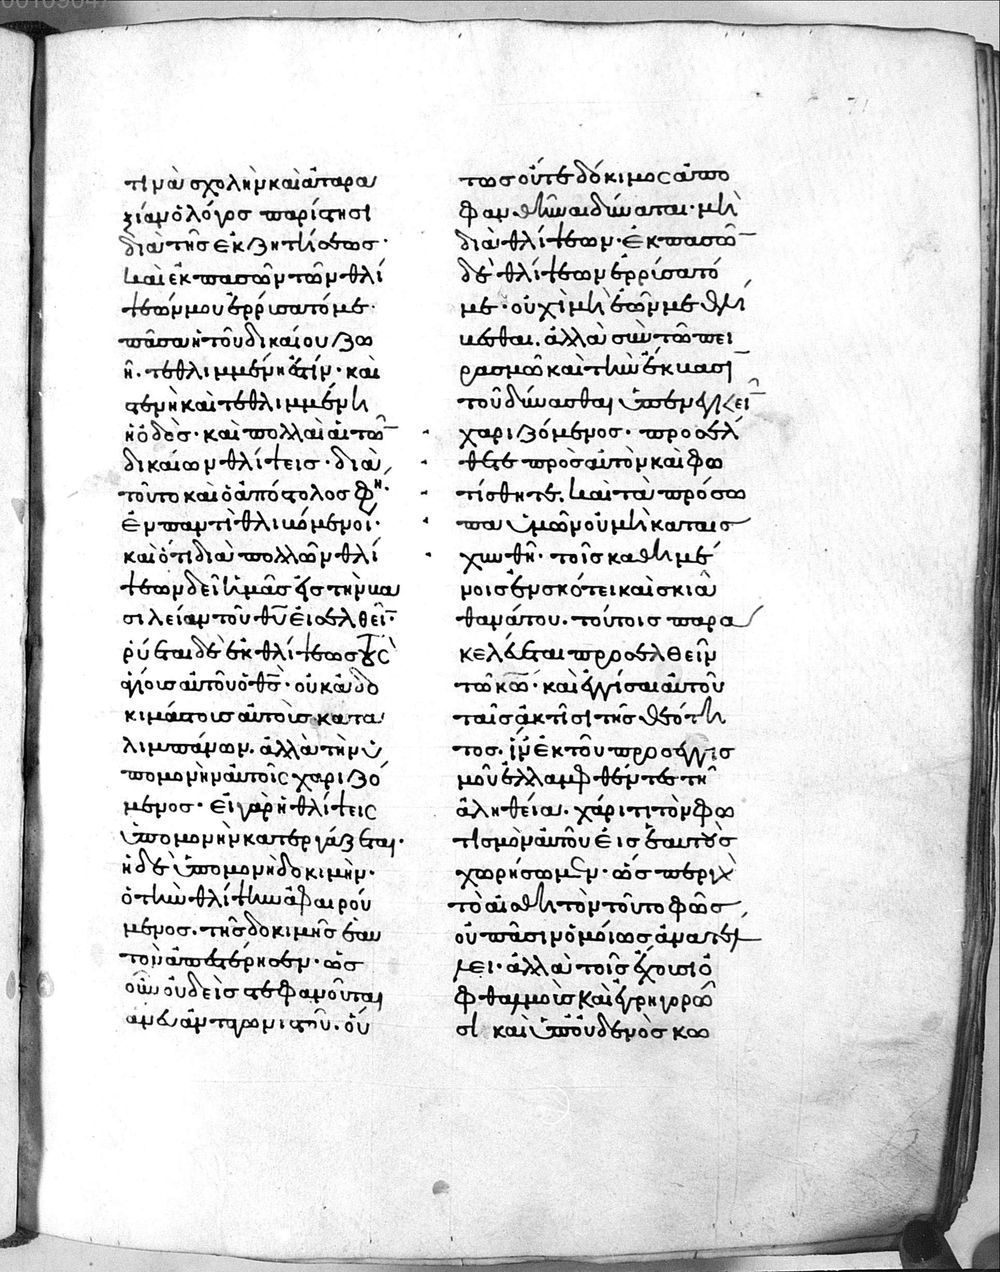 τινὰ σχολὴν καὶ ἀταρα
ξίαν ὁ λόγος παρίστησι
διὰ τῆς ἐκζητήσεως·
καὶ ἐκ πασῶν τῶν θλί
ψεών μου ἐρρύσατό με·
πᾶσα ἡ τοῦ δικαίου ζω
ἢ· τεθλιμμένη ἐστίν· καὶ
στενὴ καὶ τεθλιμμένη
ἡ ὁδὸς· καὶ πολλαὶ αἱ τῶ
δικαίων θλίψεις· διὰ
τοῦτο καὶ ὁ ἀπόστολος φη·
ἐν παντὶ θλιβόμενοι·
καὶ ὅτι διὰ πολλῶν θλί
ψεων δεῖ ἡμᾶς εἰς τὴν βα
σιλείαν τοῦ θυ εἰσελθεῖ·
ῥύεται δὲ ἐκ θλίψεως τοὺς
ἁγίους αὐτοῦ ὁ θς· οὐκ ἀδο
κιμάστους αὐτοὺς κατα
λιμπάνων. ἀλλὰ τὴν ὑ
πομονὴν αὐτοῖς χαριζό
μενος· εἰ γὰρ ἡ θλίψεις
ὑπομονὴν κατεργάζεται·
ἡ δὲ ὑπομονὴ δοκιμὴν·
ὁ τὴν θλίψιν ἀφαιρού
μενος. τῆς δοκιμῆς ἑαυ
τὸν ἀπεστέρησεν· ὡς
οὖν οὐδεὶς στεφανοῦται
ἄνευ ἀνταγωνιστοῦ. οὕ
τως οὔτε δόκιμος ἀπο
φανθῆναι δύναται· μὴ
διὰ θλίψεων· ἐκ πασῶ
δὲ θλίψεων ἐρρύσατό
με· οὐχὶ μὴ ἐῶν με θλί
βεσθαι. ἀλλὰ σὺν τῶ πει
ρασμῶ καὶ τὴν ἔκβασι
τοῦ δύνασθαι ὑπενεγκεῖ
χαριζόμενος· προσέλ
θετε πρὸς αὐτὸν καὶ φω
τίσθητε. καὶ τὰ πρόσω
πα ὑμῶν οὐ μὴ καταισ
χυνθῆ· τοῖς καθημέ
νοις ἐν σκότει καὶ σκιᾶ
θανάτου. τούτοις παρα
κελέυεται προσελθεῖν
τῶ κω· καὶ ἐγγίσαι αὐτοῦ
ταῖς ἀκτῖσι τῆς θεότη
τος. ἵν ἐκ τοῦ προσεγγισ
μοῦ ἐλλαμφθέντες τῆ
ἀληθεία. χάριτι τὸν φω
τισμὸν αὐτοῦ εἰς ἑαυτοὺς
χωρήσωμεν· ὡς περ γὰρ
τὸ αἰσθητὸν τοῦτο φῶς
οὐ πᾶσιν ὁμοίως ἀνατέλ
λει· ἀλλὰ τοῖς ἔχουσι ὀ
φθαλμοὺς καὶ ἐγρηγορῶ
σι καὶ ὑπ οὐδενὸς κω